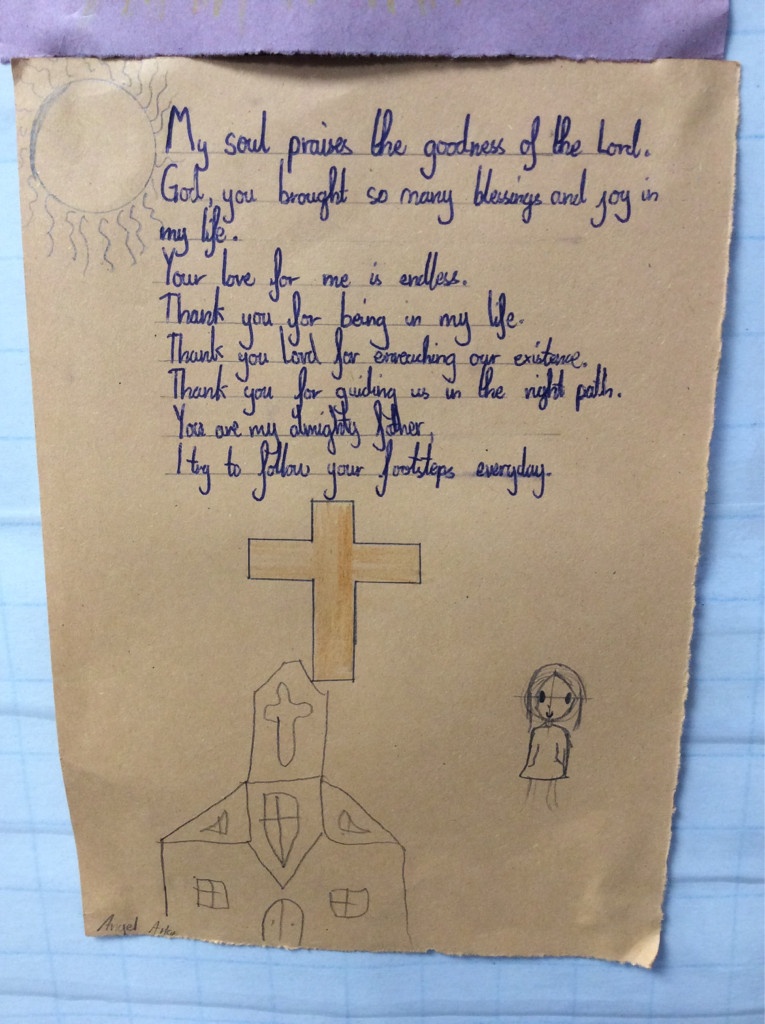 My soul praises the goodness of the Lord.
God, you brought so many blessings and joy in
my life.
Your love for me is endless.
Thank you for being in my life.
Thank you Lord for enreaching our existence.
Thank you for guiding us in the right path.
You are my almighty father,
I try to follow your footsteps everyday.
Angel